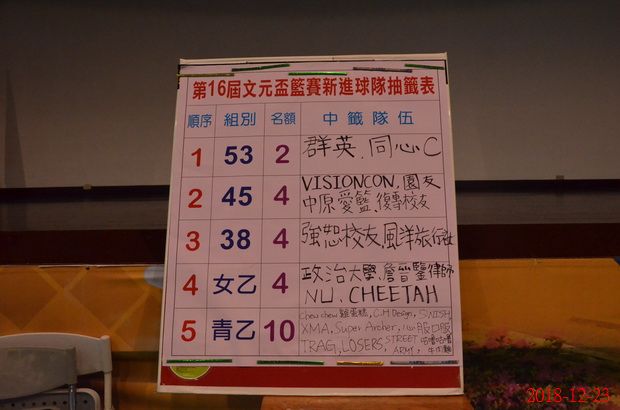 第16屆文元盃籃賽新進球隊抽籤表
順序 組別 名額 中籤隊伍
1 53 2 群英、同心C
2 45 4 VISIONCON、園友
中原愛籃、復專校友
3 38 4 強恕校友、風洋旅行社
4 女乙 4 政治大學、詹晉鑒律師
NU、CHEETAH
5 青乙 10 Chew chew 雞蛋糕、C.H Design、SWISH
XMA、Super Archer、
TRAG、LOSERS、STREET ARMY、
2018-12-23